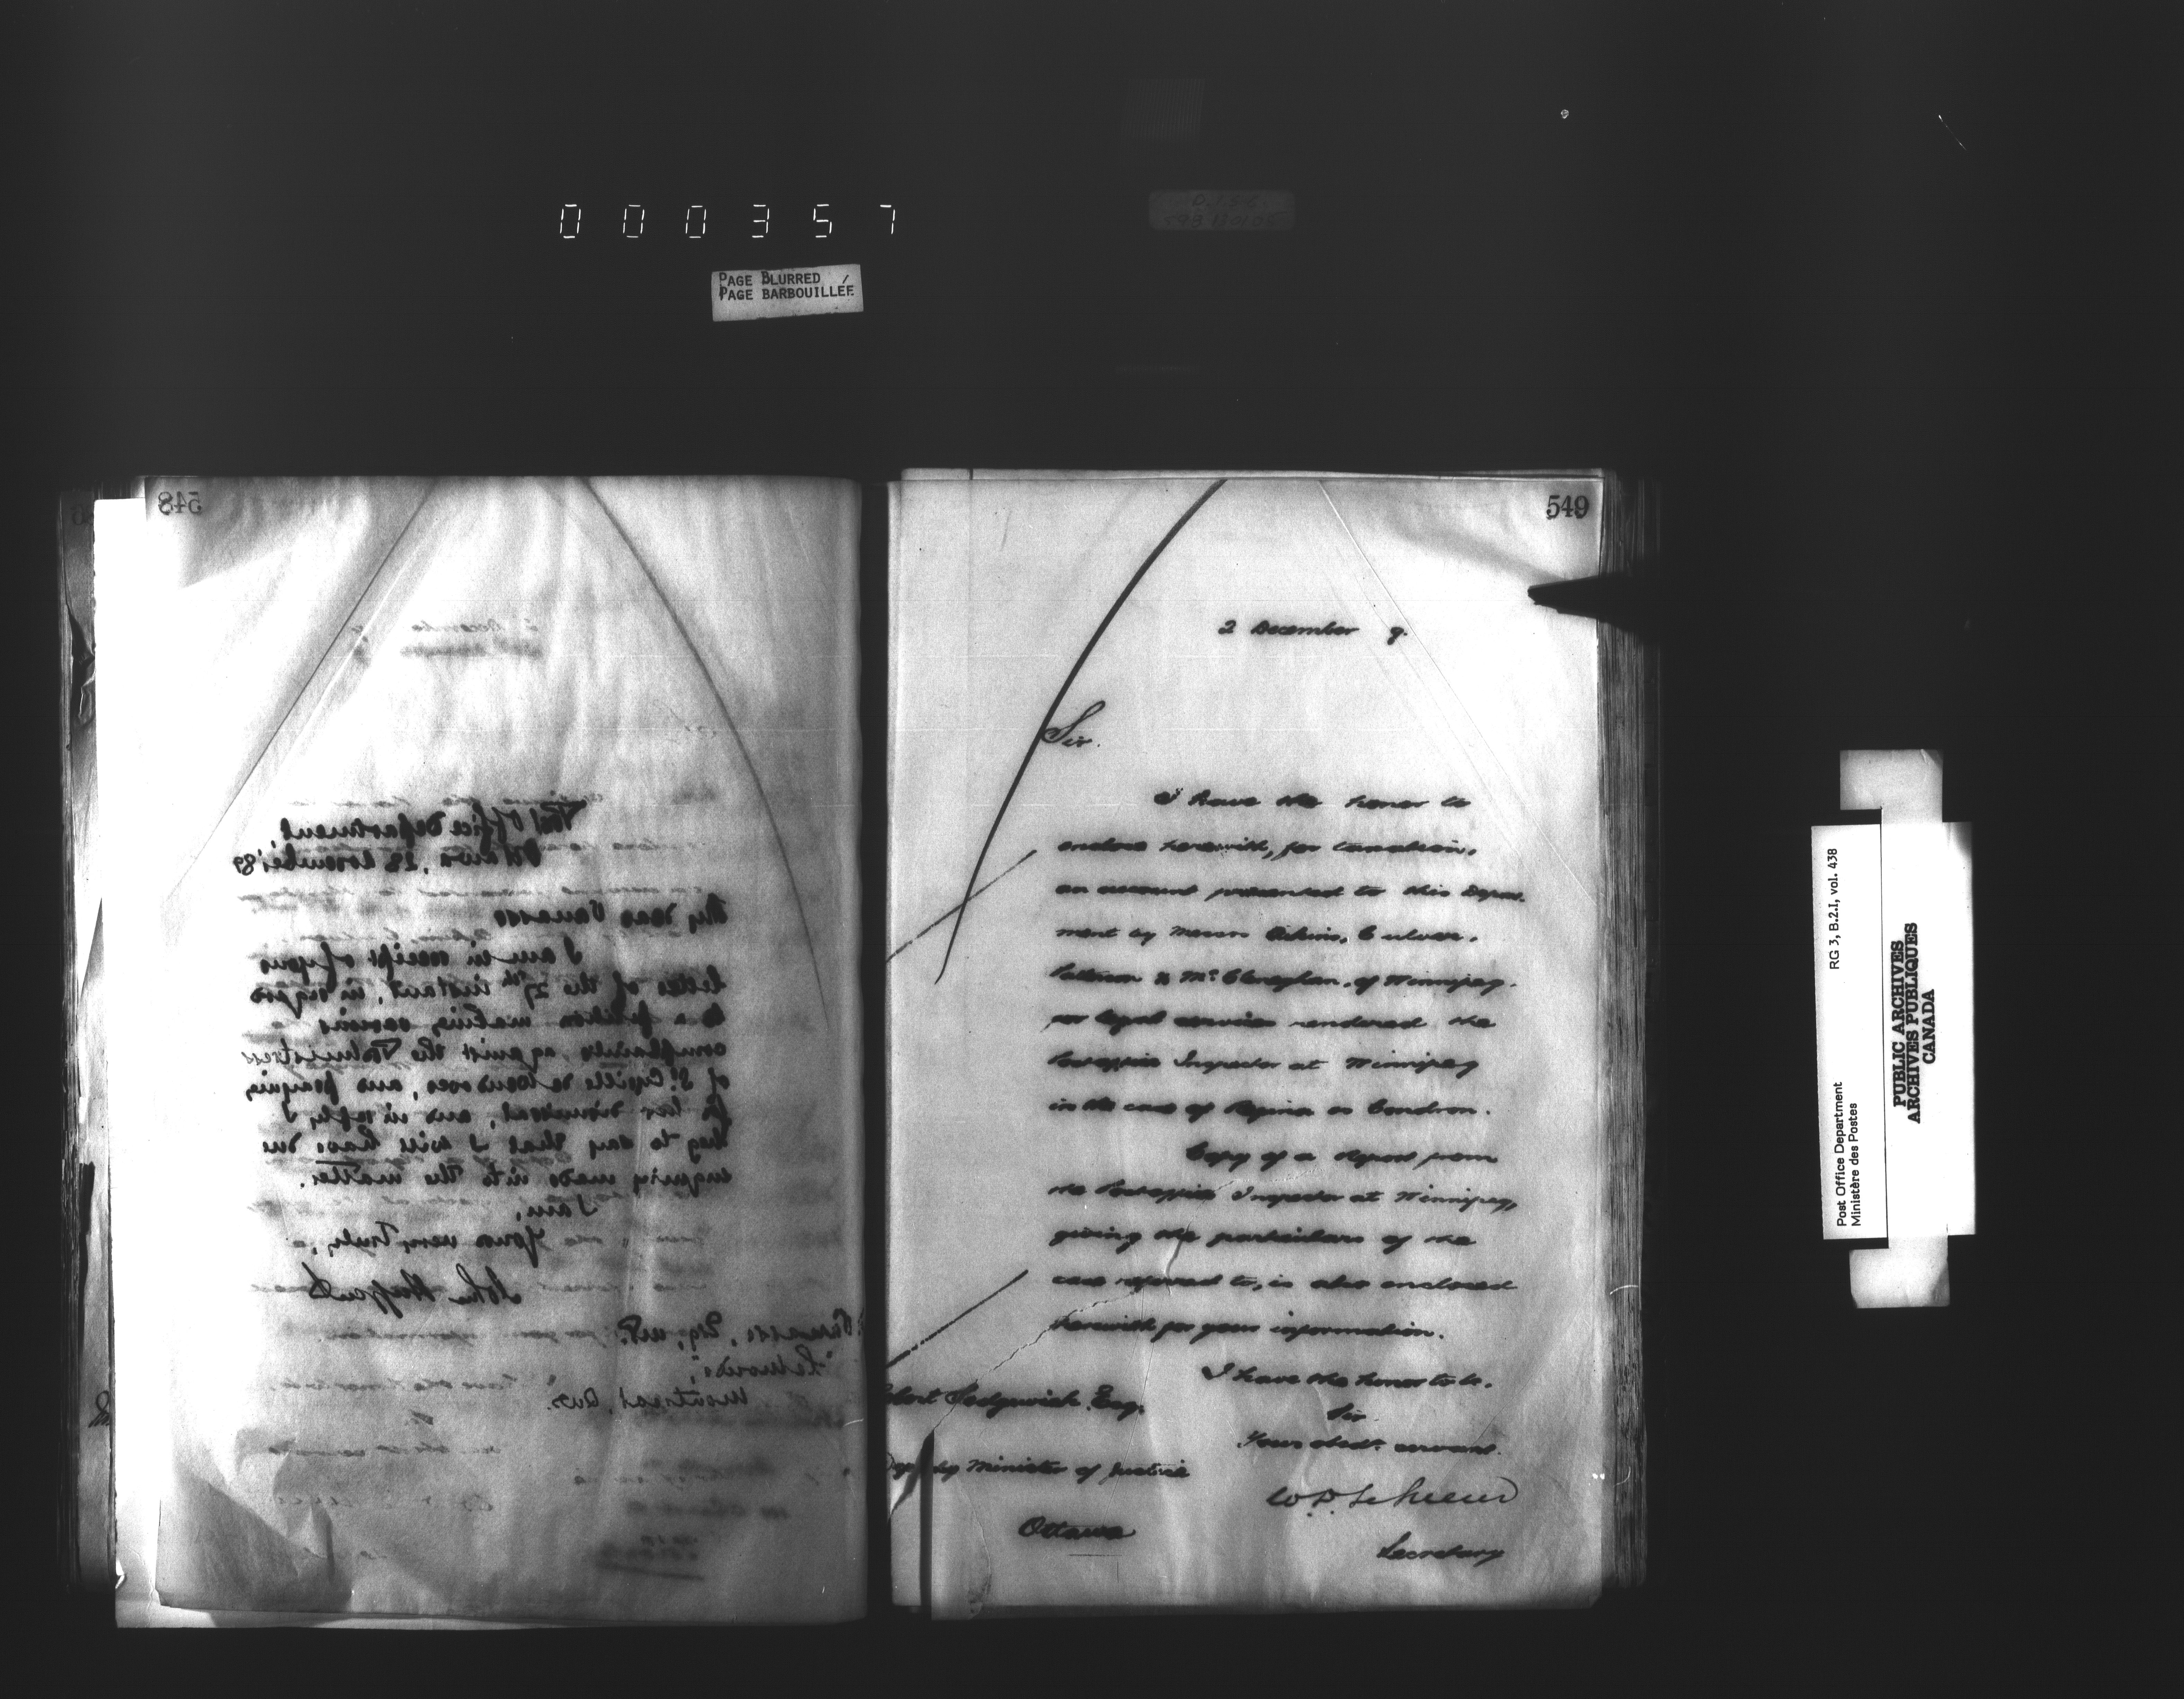 000357
PAGE BLURRED
PAGE BARBOUILLÉE
548
Post Office Department,
Ottawa, 28 November '89
My dear Vanasse
I am in receipt of your
letter of the 27th instant, in regard
to a petition making various
complaints against the Postmistress
of St. Cyrille de Wendover, and praying
for her removal, and in reply I
beg to say that I will have due
enquiry made into the matter.
I am,
Yours very truly,
John Haggart
Vanasse, Esq, M.P.
Montreal, Que.
549
2 December 9.
Sir.
I have the honor to
enclose herewith, for taxation,
an account presented to this Depart-
ment by Messrs Aikins, Culver,
Patterson & McClenaghan, of Winnipeg.
for legal services rendered the
Postoffice Inspector at Winnipeg
in the case of Regina vs Condron.
Copy of a Report from
the Postoffice Inspector at Winnipeg,
giving the particulars of the
case referred to, is also enclosed
herewith for your information.
I have the honor to be.
Sir
Your obedt. servant.
W.D. LeSueur
Secretary
Sedgewick Esq.
Deputy Minister of Justice
Ottawa
RG 3, B.2.I, vol. 438
Post Office Department
Ministère des Postes
PUBLIC ARCHIVES
ARCHIVES PUBLIQUES
CANADA